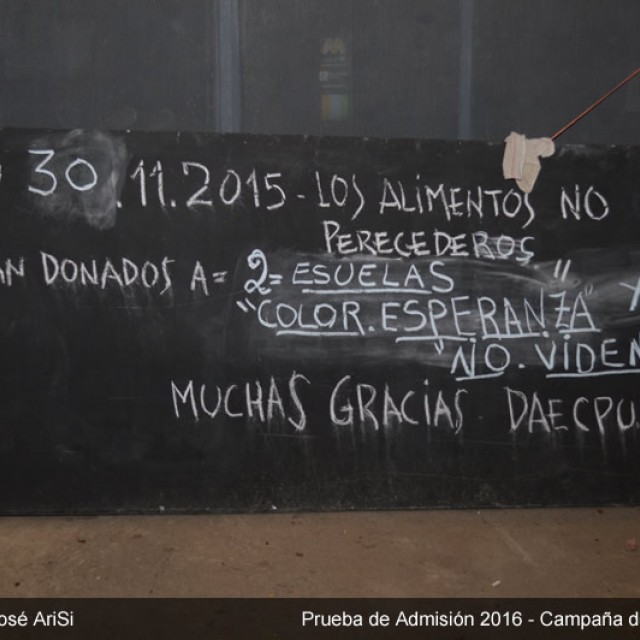 30.11.2015 - LOS ALIMENTOS NO
PERECEDEROS
AN DONADOS A = 2 = ESUELAS "
"COLOR.ESPERANZA" Y
"NO.VIDEN
MUCHAS GRACIAS - DAECPU.
osé AriSi
Prueba de Admisión 2016 - Campaña d